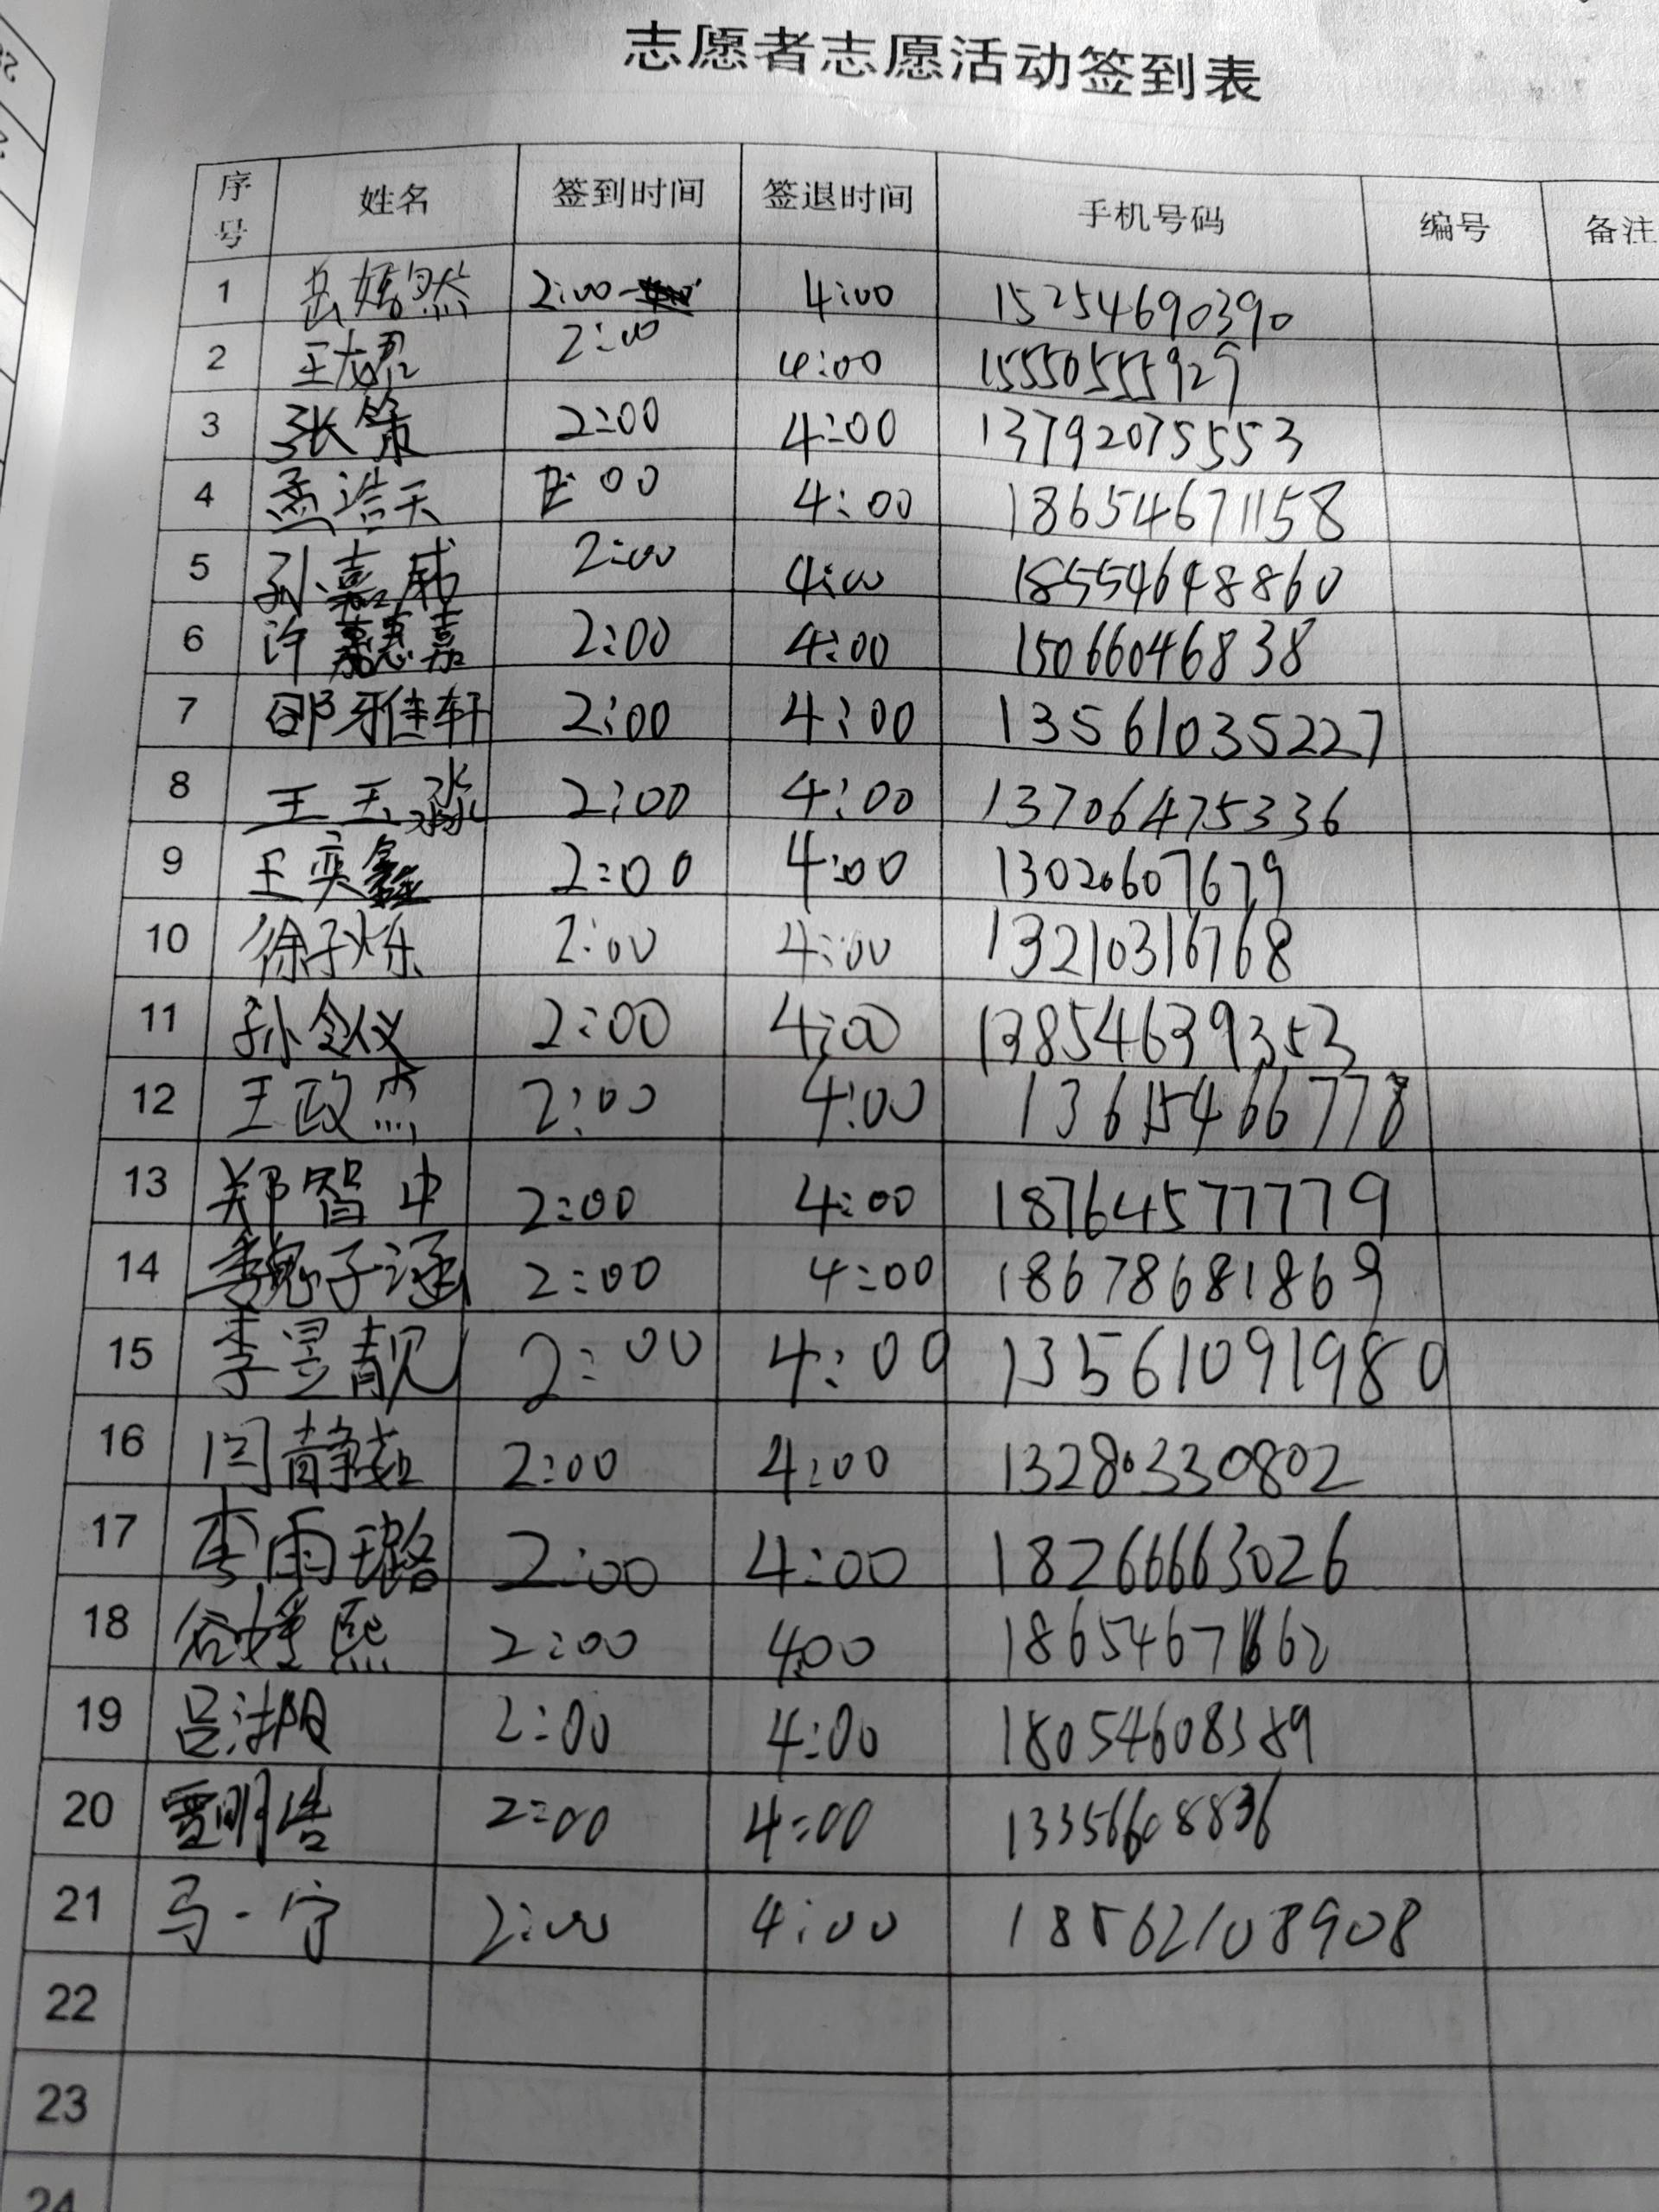 志愿者志愿活动签到表
序号 姓名 签到时间 签退时间 手机号码 编号 备注
1 岳嫣然 2:00 4:00 15254690390
2 王尤君 2:00 4:00 15550555929
3 张策 2:00 4:00 13792075553
4 孟浩天 2:00 4:00 18654671158
5 孙嘉成 2:00 4:00 18554648860
6 许惠嘉 2:00 4:00 15066046838
7 邵雅轩 2:00 4:00 13561035227
8 王玉淼 2:00 4:00 13706475336
9 王奕鑫 2:00 4:00 13020607679
10 徐子烁 2:00 4:00 13210316768
11 孙令仪 2:00 4:00 13854639353
12 王政杰 2:00 4:00 13615466778
13 郑智中 2:00 4:00 18764577779
14 魏子涵 2:00 4:00 18678681869
15 李昱靓 2:00 4:00 13561091980
16 闫静 2:00 4:00 13280330802
17 李雨璐 2:00 4:00 18266663026
18 熙 2:00 4:00 18654671662
19 吕 2:00 4:00 18054608389
20 雷明浩 2:00 4:00 13356608836
21 马一宁 2:00 4:00 18562108908
22
23
24